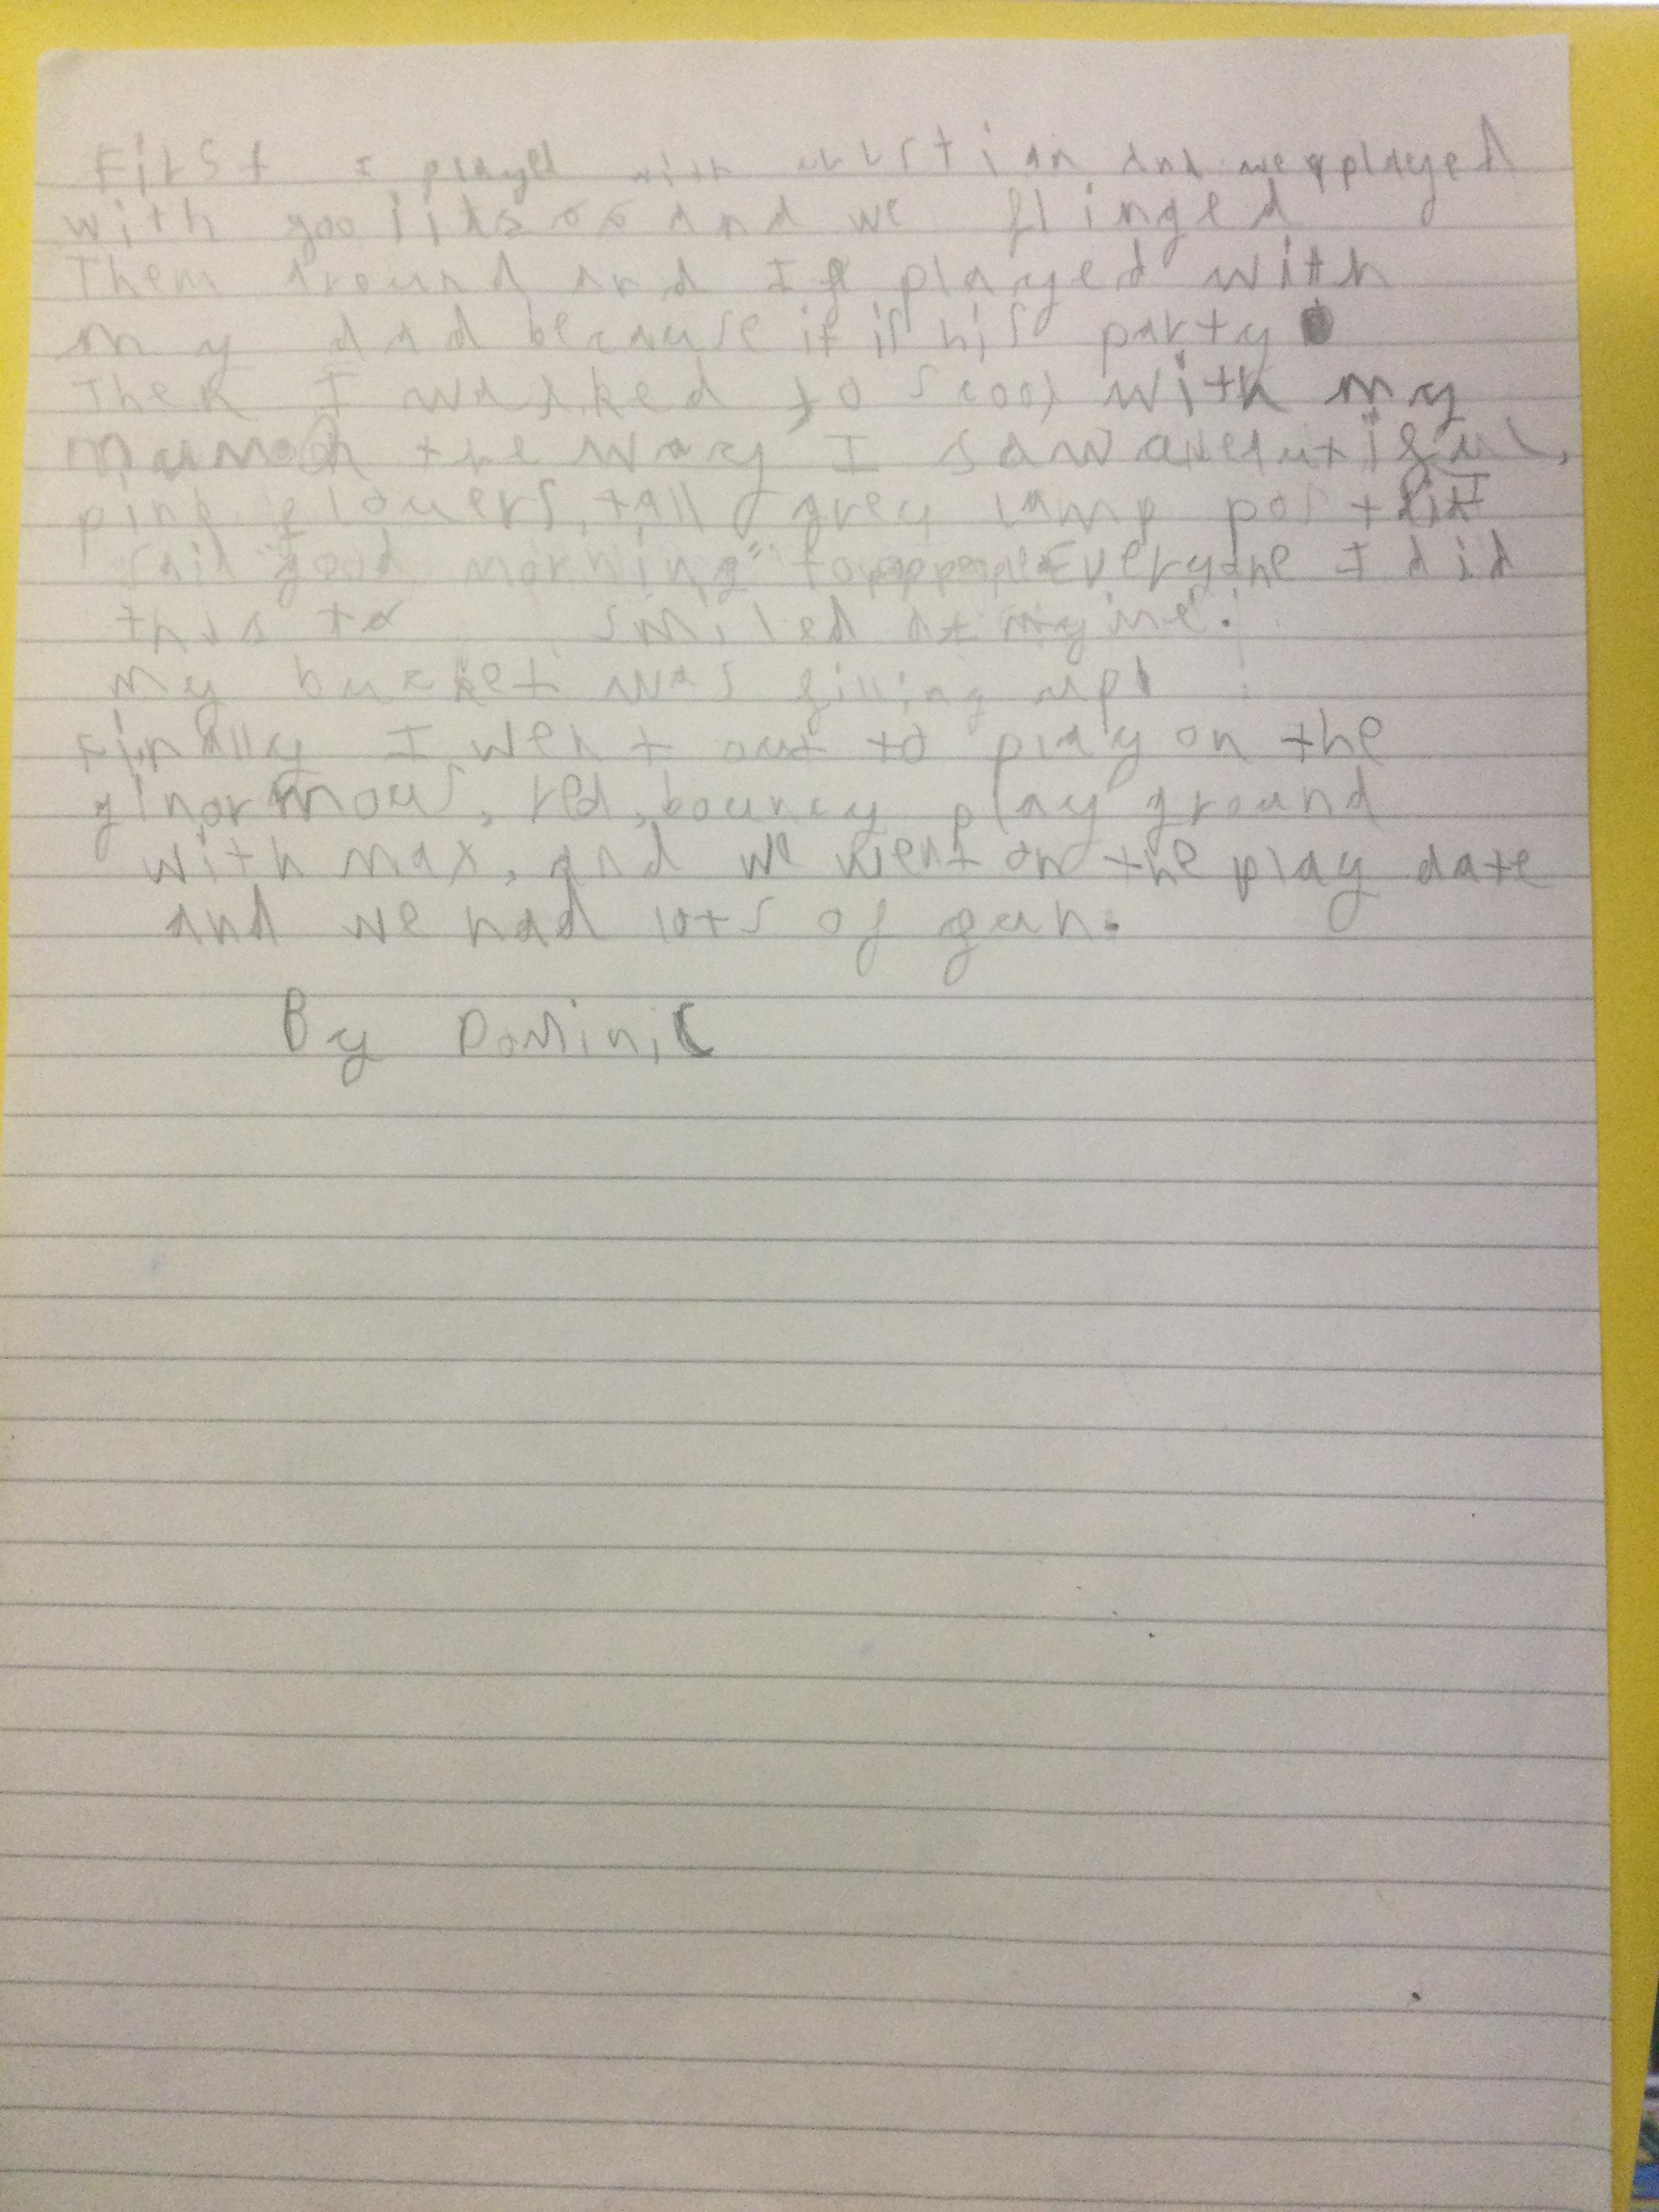 First I played with and we played
with and we flinged
Them around and I played with
my dad because it is his party
Then I walked to scool with my
mum the way I saw
pink flowers, tall grey lamp post I
said "good morning" to Everyone I did
this to smiled at
my bucket was filling up!
Finally I went out to play on the
ginormous, red, bouncy play ground
with max, and we went on the play date
and we had lots of fun.
By Dominic